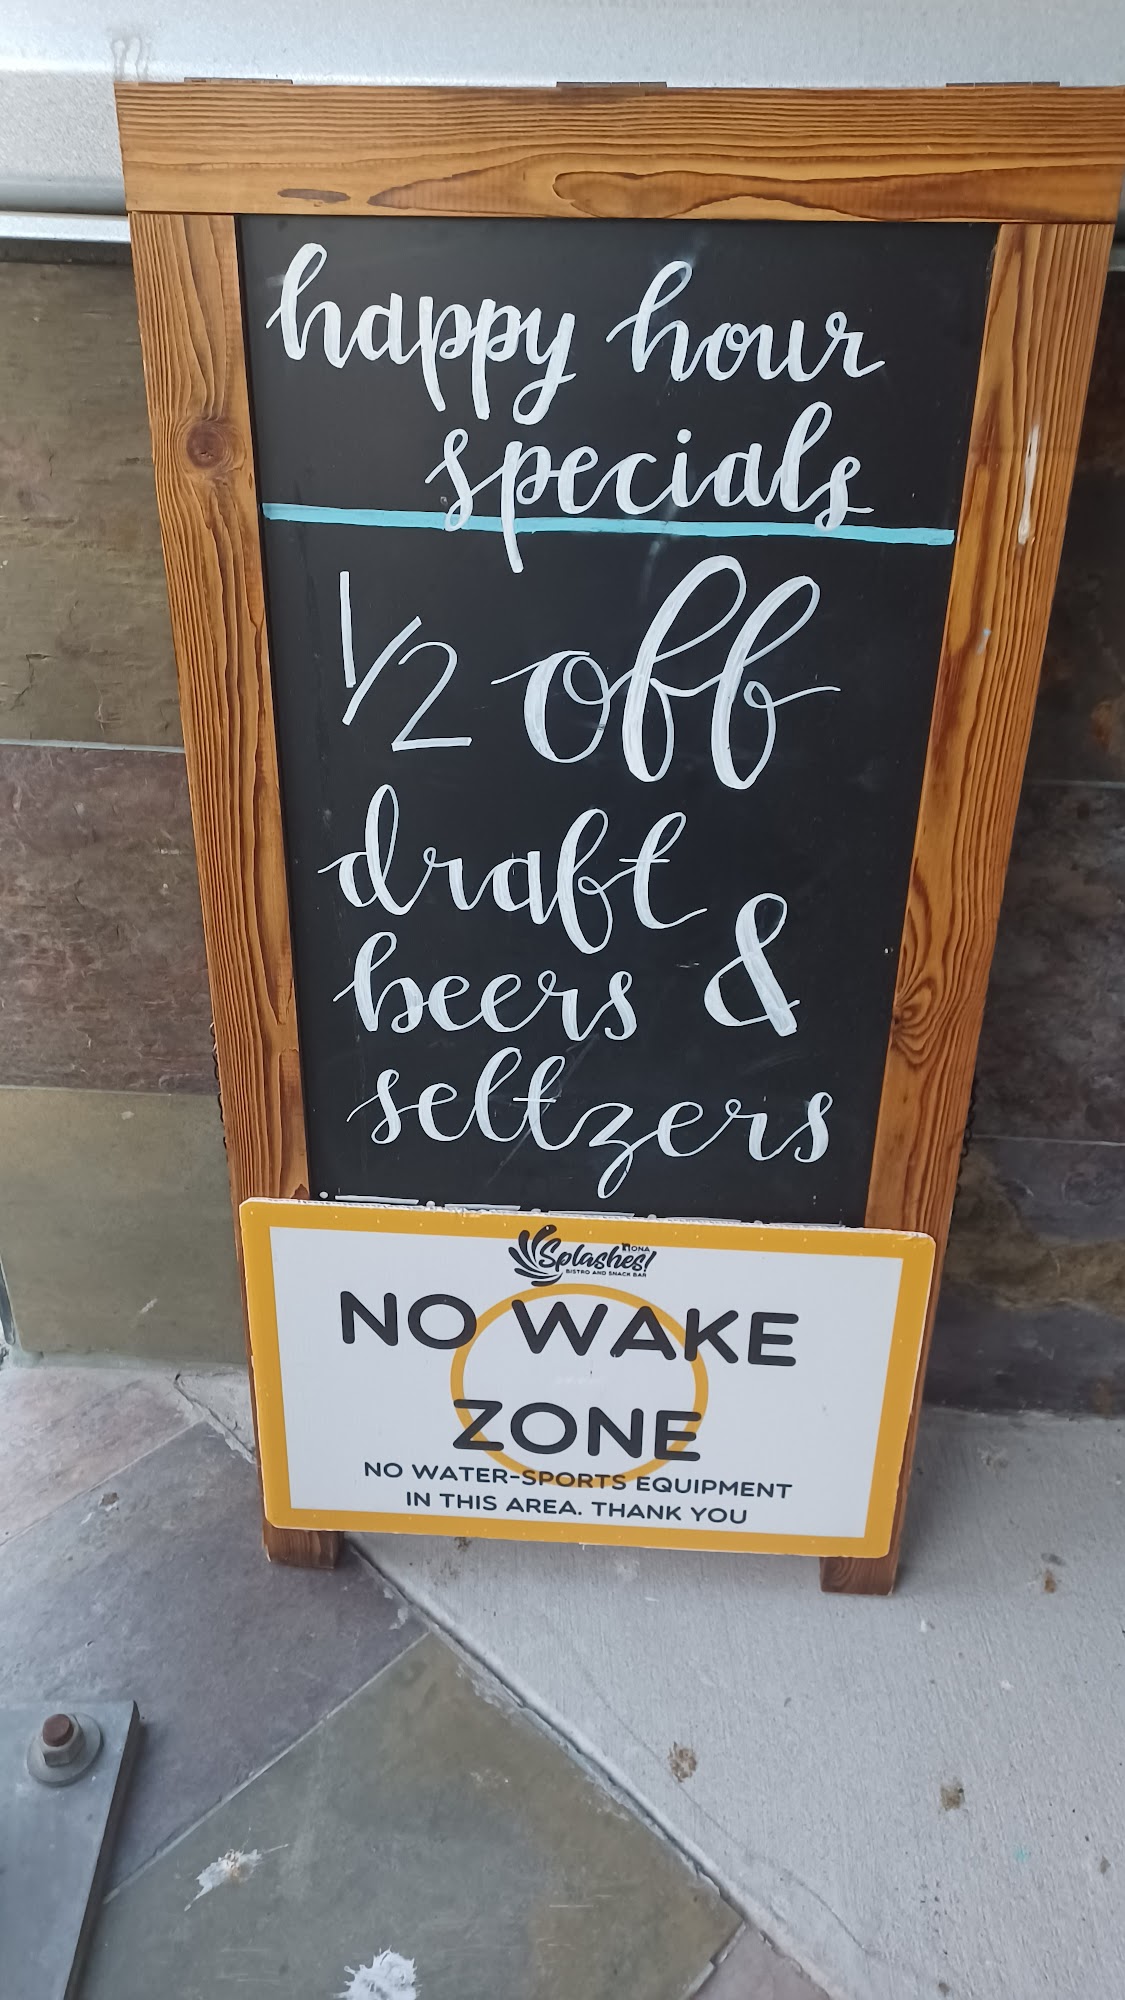 happy hour
specials
1/2 off
draft
beers &
seltzers
Splashes!
BISTRO AND SNACK BAR
NO WAKE
ZONE
NO WATER-SPORTS EQUIPMENT
IN THIS AREA. THANK YOU